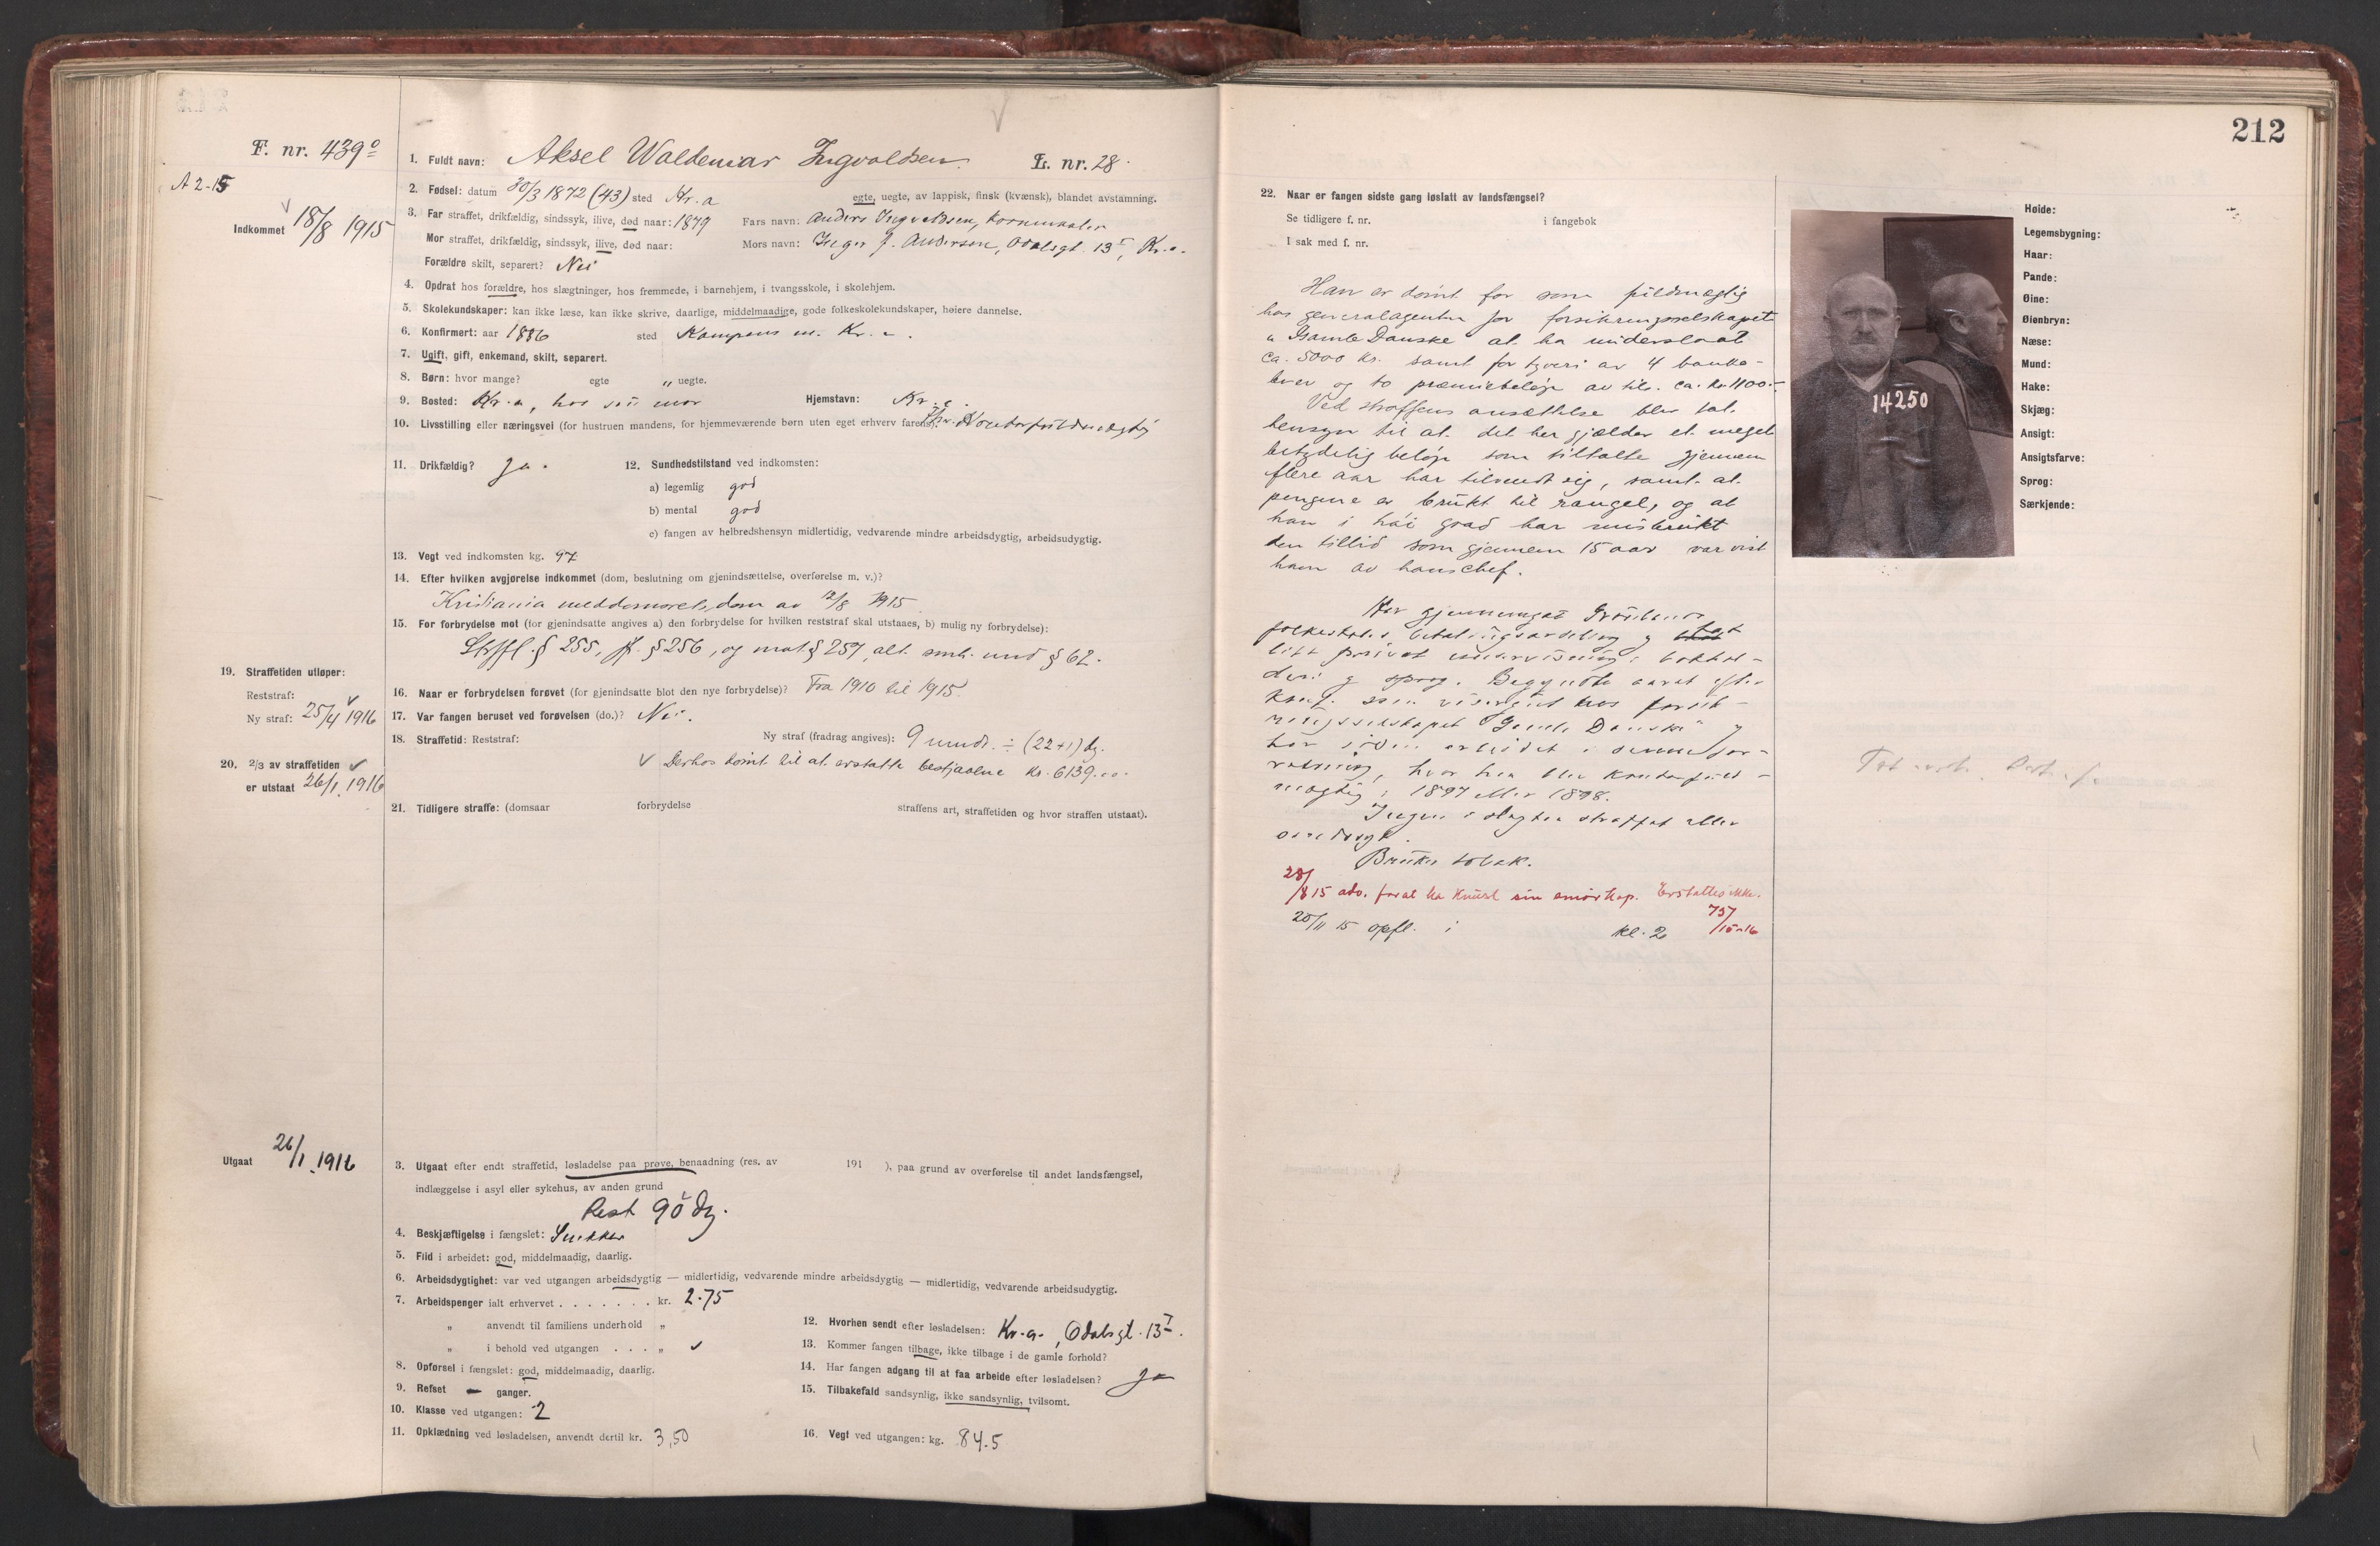 212
F. nr. 439º
A 2-15
Indkommet 18/8 1915
1. Fuldt navn: Aksel Waldemar Ingvaldsen. L. nr. 28.
2. Fødsel: datum 30/3 1872 (43) sted Kr.a egte, uegte, av lappisk, finsk (kvænsk), blandet avstamning.
3. Far straffet, drikfældig, sindssyk, ilive, død naar: 1879 Fars navn: Anders Ingvaldsen, Kornmaaler
Mor straffet, drikfældig, sindssyk, ilive, død naar: Mors navn: Inger J. Anderson, Odalsgt. 13 I, Kr.a.
Forældre skilt, separert? Nei
4. Opdrat hos forældre, hos slægtninger, hos fremmede, i barnehjem, i tvangsskole, i skolehjem.
5. Skolekundskaper: kan ikke læse, kan ikke skrive, daarlige, middelmaadige, gode folkeskolekundskaper, høiere dannelse.
6. Konfirmert: aar 1886 sted Kampens m. Kr.a.
7. Ugift, gift, enkemand, skilt, separert.
8. Børn: hvor mange? egte „ uegte.
9. Bosted: Kr.a, hos sin mor Hjemstavn: Kr.a.
10. Livsstilling eller næringsvei (for hustruen mandens, for hjemmeværende børn uten eget erhverv farens): Kontorfuldmægtig
11. Drikfældig? Ja. 12. Sundhedstilstand ved indkomsten:
a) legemlig god
b) mental god
c) fangen av helbredshensyn midlertidig, vedvarende mindre arbeidsdygtig, arbeidsudygtig.
13. Vegt ved indkomsten kg. 97
14. Efter hvilken avgjørelse indkommet (dom, beslutning om gjenindsættelse, overførelse m. v.)?
Kristiania meddomsrets dom av 12/8 1915
15. For forbrydelse mot (for gjenindsatte angives a) den forbrydelse for hvilken reststraf skal utstaaes, b) mulig ny forbrydelse):
Strfl. § 255, jf. § 256, og mot § 257, alt smh. med § 62.
16. Naar er forbrydelsen forøvet (for gjenindsatte blot den nye forbrydelse)? Fra 1910 til 1915.
17. Var fangen beruset ved forøvelsen (do.)? Nei.
18. Straffetid: Reststraf: Ny straf (fradrag angives): 9 mndr. ÷ (22+1) dg.
Derhos dømt til at erstatte bestjaalne kr. 6139.00.
19. Straffetiden utløper:
Reststraf:
Ny straf: 25/4 1916
20. 2/3 av straffetiden
er utstaat 26/1 1916
21. Tidligere straffe: (domsaar forbrydelse straffens art, straffetiden og hvor straffen utstaat).
Utgaat 26/1 1916
3. Utgaat efter endt straffetid, løsladelse paa prøve, benaadning (res. av 191 ), paa grund av overførelse til andet landsfængsel,
indlæggelse i asyl eller sykehus, av anden grund
Rest 90 dg.
4. Beskjæftigelse i fængslet: Snekker
5. Flid i arbeidet: god, middelmaadig, daarlig.
6. Arbeidsdygtighet: var ved utgangen arbeidsdygtig — midlertidig, vedvarende mindre arbeidsdygtig — midlertidig, vedvarende arbeidsudygtig.
7. Arbeidspenger ialt erhvervet . . . . . . . kr. 2.75
„ anvendt til familiens underhold „
„ i behold ved utgangen . . . „
8. Opførsel i fængslet: god, middelmaadig, daarlig.
9. Refset — ganger.
10. Klasse ved utgangen: 2
11. Opklædning ved løsladelsen, anvendt dertil kr. 3,50
12. Hvorhen sendt efter løsladelsen: Kr.a., Odalsgt. 13 I.
13. Kommer fangen tilbage, ikke tilbage i de gamle forhold?
14. Har fangen adgang til at faa arbeide efter løsladelsen? Ja
15. Tilbakefald sandsynlig, ikke sandsynlig, tvilsomt.
16. Vegt ved utgangen: kg. 84.5
22. Naar er fangen sidste gang løslatt av landsfængsel?
Se tidligere f. nr. i fangebok
I sak med f. nr.
Han er dømt for som fuldmægtig
hos generalagenten for forsikringsselskapet
„Gamle Danske at ha underslaat
ca. 5000 kr. samt for tyveri av 4 banke-
brev og to præmiebeløp av til. ca. kr. 1100.-
Ved straffens ansættelse blev tat
hensyn til at det her gjælder et meget
betydelig beløp som tiltalte gjennem
flere aar har tilvendt sig, samt at
pengene er brukt til rangel, og at
han i høi grad har misbrukt
den tillid som gjennem 15 aar var vist
ham av hans chef.
Har gjennemgat Grønlands
folkeskoles betalingsavdeling og tat
litt privat undervisning i bokhol-
deri og sprog. Begyndte aaret efter
konf. som visergut hos forsik-
ringsselskapet „Gamle Danske" og
har siden arbeidet i denne for-
retning, hvor han blev kontorfuld-
mægtig i 1897 eller 1898.
Ingen i slegten straffet eller
sindssyk.
Bruker tobak.
28/8 15 adv. forat ha knust sin smørkop. Erstattes ikke.
757/15-16
20/11 15 opfl. i kl. 2
14250
Høide:
Legemsbygning:
Haar:
Pande:
Øine:
Øienbryn:
Næse:
Mund:
Hake:
Skjæg:
Ansigt:
Ansigtsfarve:
Sprog:
Særkjende: